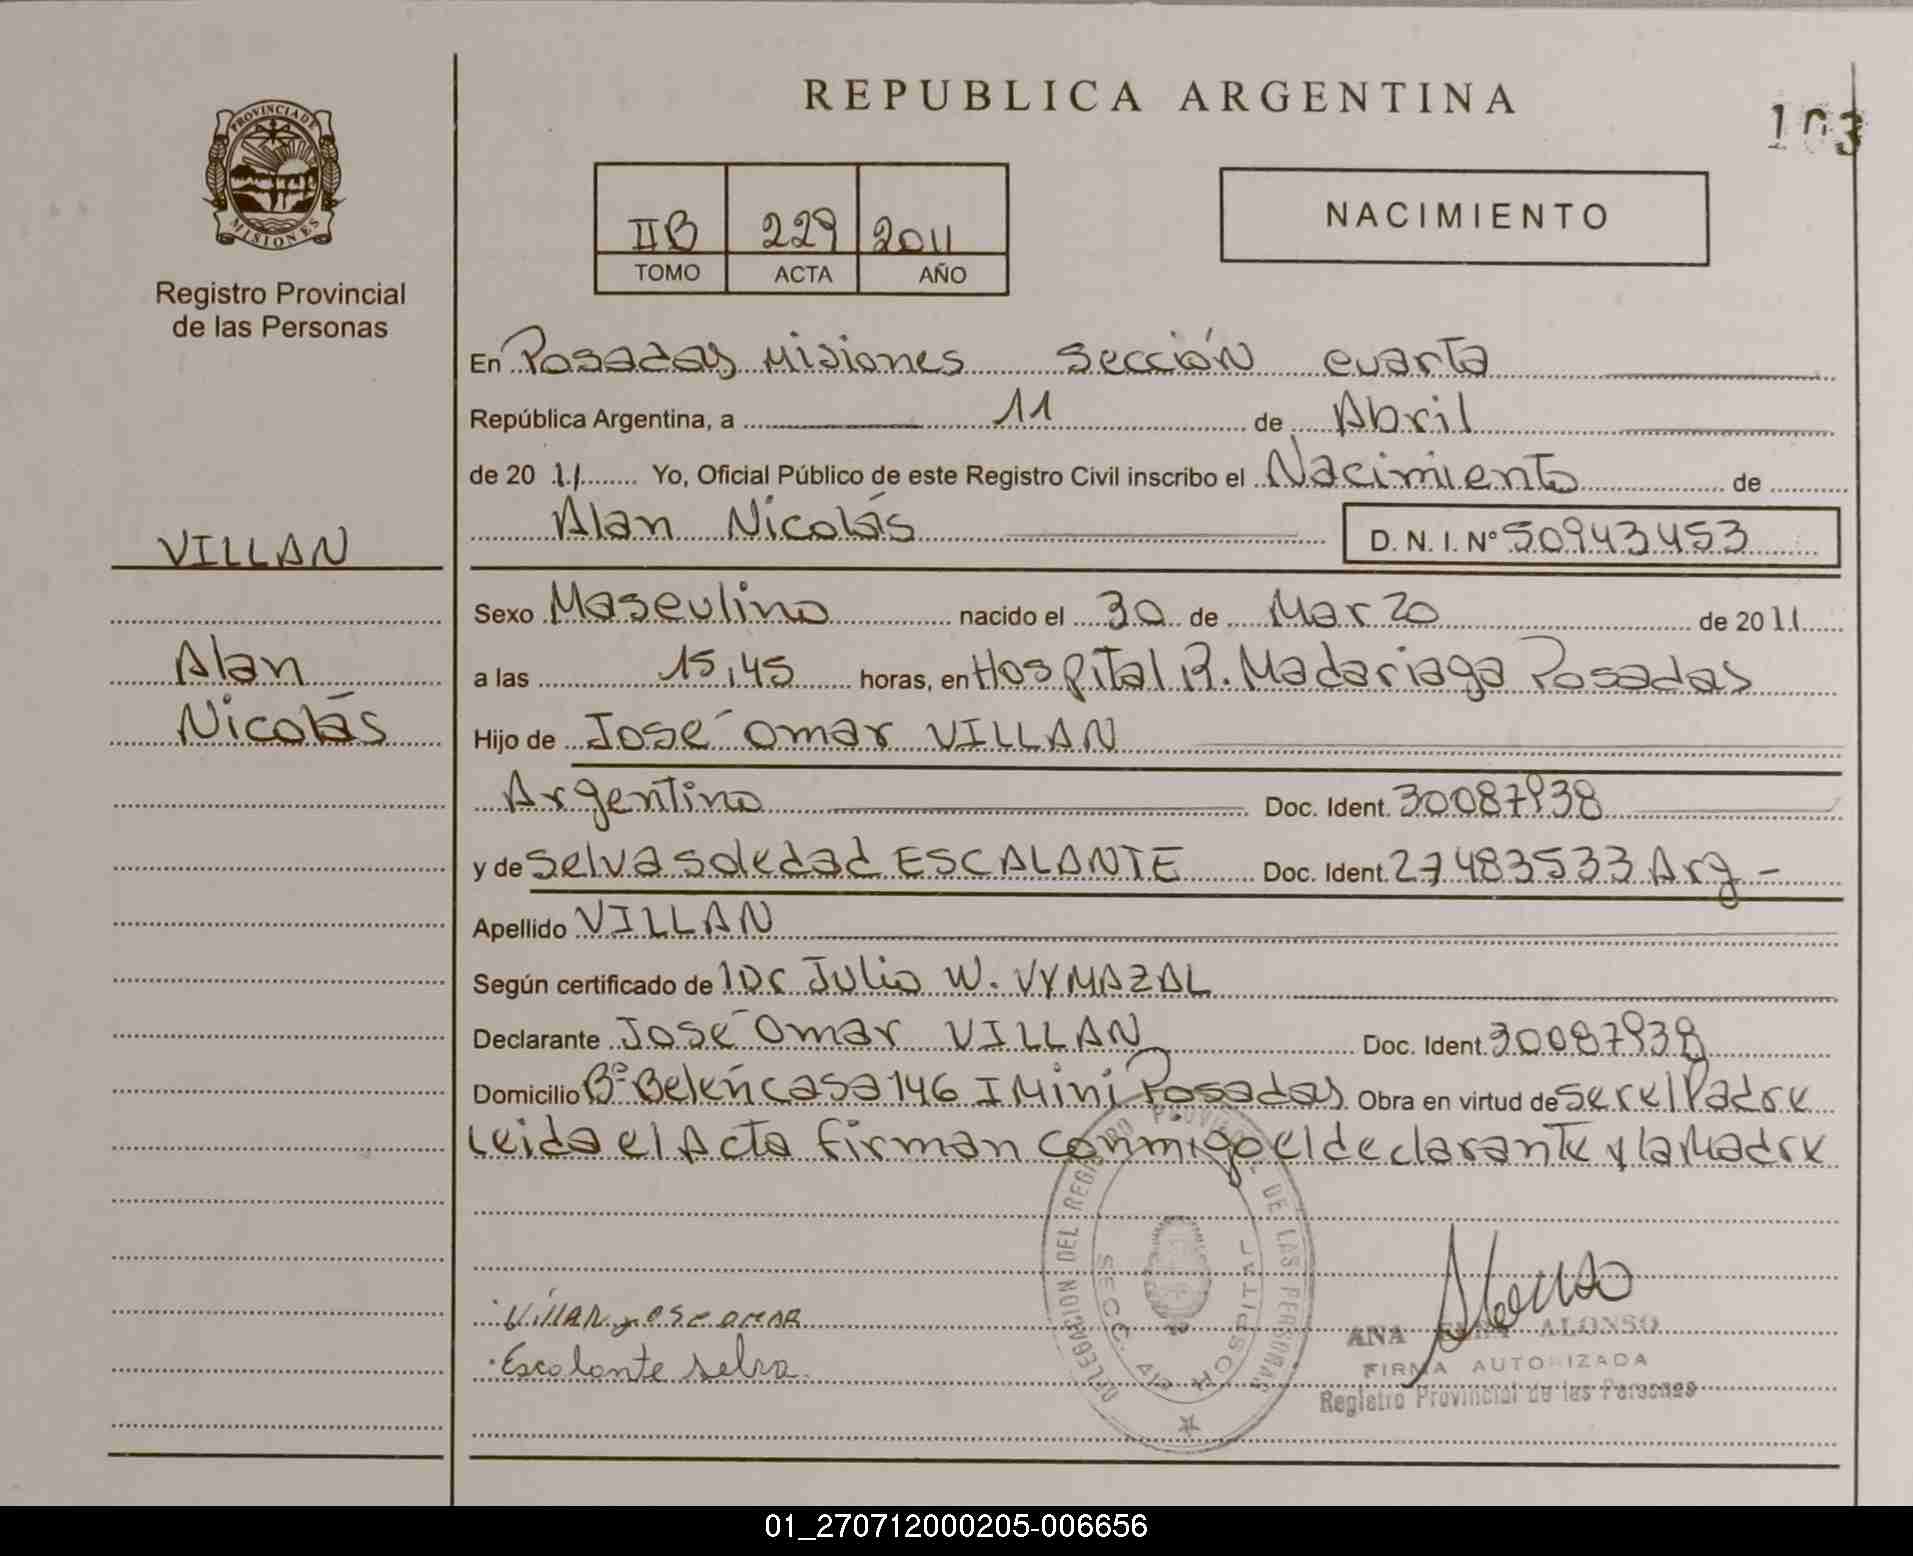 REPUBLICA ARGENTINA
103
PROVINCIA DE
MISIONES
Registro Provincial
de las Personas
II B 229 2011
TOMO ACTA AÑO
NACIMIENTO
En Posadas Misiones sección cuarta
República Argentina, a 11 de Abril
de 20 11 Yo, Oficial Público de este Registro Civil inscribo el Nacimiento de
Alan Nicolás D. N. I. N° 50943453
VILLAN
Alan
Nicolás
Sexo Masculino nacido el 30 de Marzo de 2011
a las 15,45 horas, en Hospital R. Madariaga Posadas
Hijo de José Omar VILLAN
Argentino Doc. Ident. 30087938
y de Selva Soledad ESCALANTE Doc. Ident. 27483533 Arg -
Apellido VILLAN
Según certificado de Julio W. VYMAZAL
Declarante José Omar VILLAN Doc. Ident. 30087938
Domicilio Bº Belén casa 146 I Mini Posadas Obra en virtud de ser el Padre
Leida el Acta firman conmigo el declarante y la Madre
DELEGACION DEL REGISTRO PROVINCIAL DE LAS PERSONAS
SECC. 4ta HOSPITAL
Villan Jose omar
Escalante selva
ANA ALONSO
FIRMA AUTORIZADA
Registro Provincial de las Personas
01_270712000205-006656